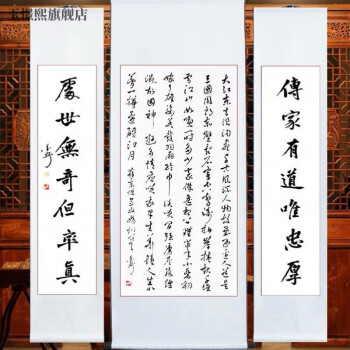 旗舰店
傳家有道唯忠厚
大江東去浪淘盡千古風流人物故壘西邊人道是
三國周郎赤壁亂石穿空驚濤拍岸捲起千堆
雪江山如畫一時多少豪傑遙想公瑾當年小喬初
嫁了雄姿英發羽扇綸巾談笑間強虜灰飛煙
滅故國神遊多情應笑我早生華髮人生如
夢一樽還酹江月
處世無奇但率真